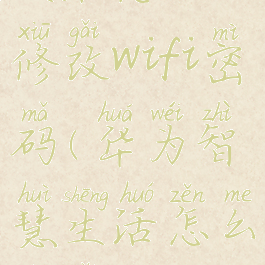 xiū gǎi mì
修改wifi密
mǎ huá wéi zhì
码(华为智
huì shēng huó zěn me
慧生活怎么